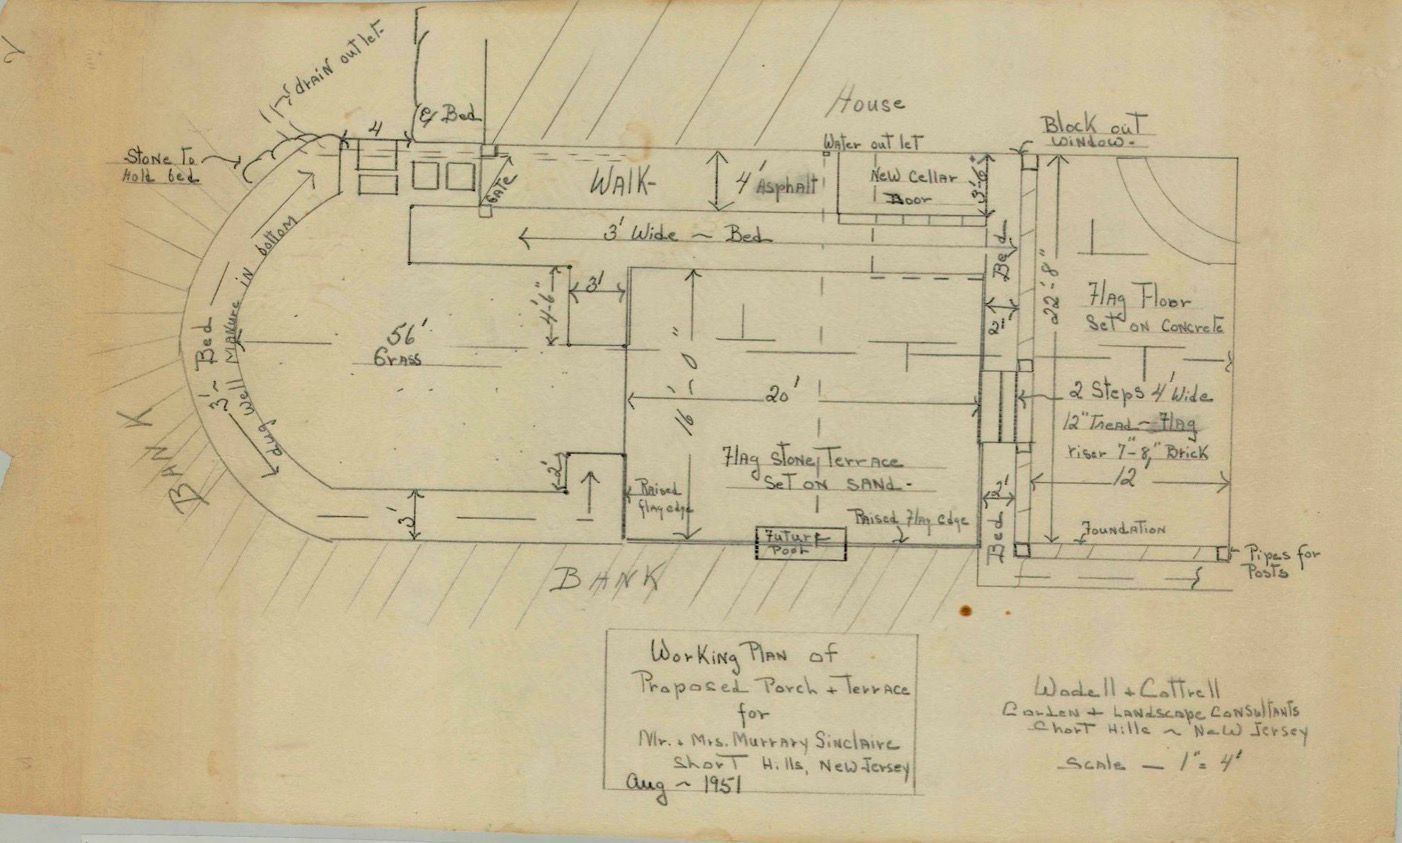 drain outlet-
4
Ex Bed
House
Water outlet
Block out
Window-
Stone To
Hold bed
Gate
Walk-
4' Asphalt
New Cellar
Door
3'-6"
3' Wide ~ Bed
Bed
2'
22'-8"
Flag Floor
Set on Concrete
3' ~ Bed
dug well Manure in bottom
56'
Grass
4'-6"
3'
16'-0"
20'
2 Steps 4' Wide
12" Tread ~ Flag
riser 7"-8" Brick
12'
Flag Stone Terrace
Set on Sand-
2'
3'
Raised
flag edge
Raised Flag edge
Future
Pool
2'
Bed
Foundation
Pipes for
Posts
Bank
Bank
Working Plan of
Proposed Porch + Terrace
for
Mr. + Mrs. Murrary Sinclaire
Short Hills, New Jersey
Aug ~ 1951
Wodell + Cottrell
Garden + Landscape Consultants
Short Hills ~ New Jersey
Scale — 1" = 4'